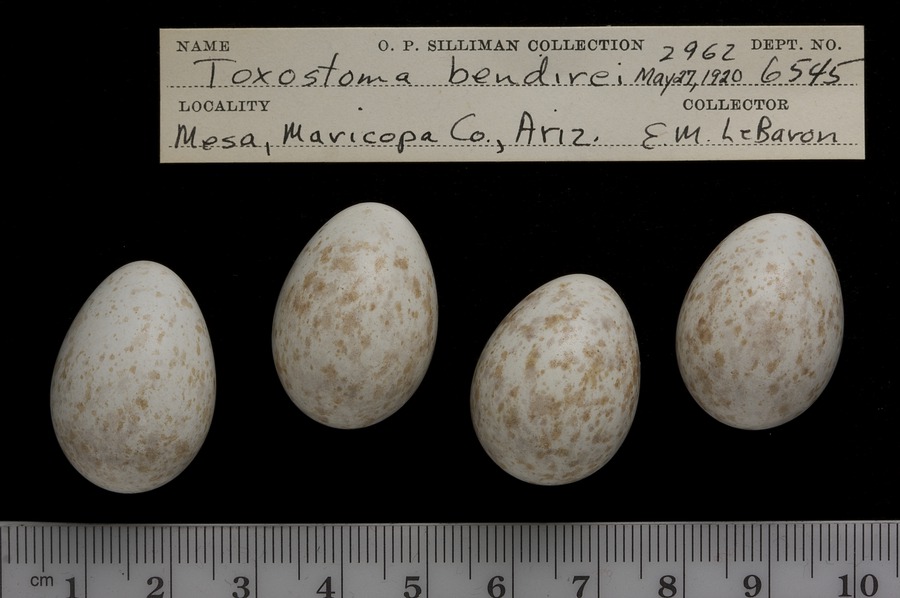 NAME O. P. SILLIMAN COLLECTION 2962 DEPT. NO.
Toxostoma bendirei May 27, 1920 6545
LOCALITY COLLECTOR
Mesa, Maricopa Co., Ariz. E.M. LeBaron
cm 1 2 3 4 5 6 7 8 9 10